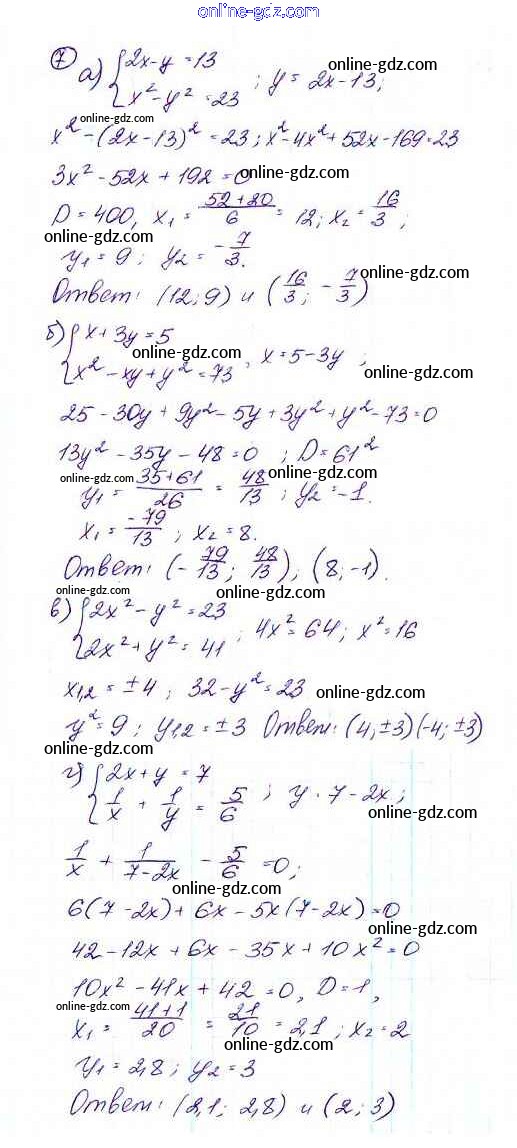 online-gdz.com
7 а) { 2x-y=13
x² - y² = 23 ; y = 2x-13;
online-gdz.com
online-gdz.com
online-gdz.com
x² - (2x-13)² = 23; x² - 4x² + 52x - 169 = 23
online-gdz.com
3x² - 52x + 192 = 0
online-gdz.com
D = 400, x₁ = (52+20)/6 = 12; x₂ = 16/3;
online-gdz.com
online-gdz.com
y₁ = 9; y₂ = -7/3.
online-gdz.com
Ответ: (12; 9) и (16/3; -7/3)
online-gdz.com
б) { x + 3y = 5
x² - xy + y² = 73, x = 5-3y ;
online-gdz.com
online-gdz.com
25 - 30y + 9y² - 5y + 3y² + y² - 73 = 0
13y² - 35y - 48 = 0 ; D = 61²
online-gdz.com
online-gdz.com
y₁ = (35+61)/26 = 48/13 ; y₂ = -1.
online-gdz.com
x₁ = -79/13 ; x₂ = 8.
online-gdz.com
Ответ: (-79/13; 48/13); (8; -1).
online-gdz.com
в) { 2x² - y² = 23
2x² + y² = 41 ; 4x² = 64; x² = 16
online-gdz.com
online-gdz.com
x₁,₂ = ±4 ; 32 - y² = 23
online-gdz.com
y² = 9 ; y₁,₂ = ±3 Ответ: (4; ±3) (-4; ±3)
online-gdz.com
online-gdz.com
г) { 2x + y = 7
1/x + 1/y = 5/6 ; y · 7 - 2x;
online-gdz.com
1/x + 1/(7-2x) - 5/6 = 0;
online-gdz.com
6(7 - 2x) + 6x - 5x(7 - 2x) = 0
online-gdz.com
42 - 12x + 6x - 35x + 10x² = 0
10x² - 41x + 42 = 0, D = 1,
online-gdz.com
online-gdz.com
x₁ = (41+1)/20 = 21/10 = 2,1; x₂ = 2
online-gdz.com
y₁ = 2,8; y₂ = 3
Ответ: (2,1; 2,8) и (2; 3)